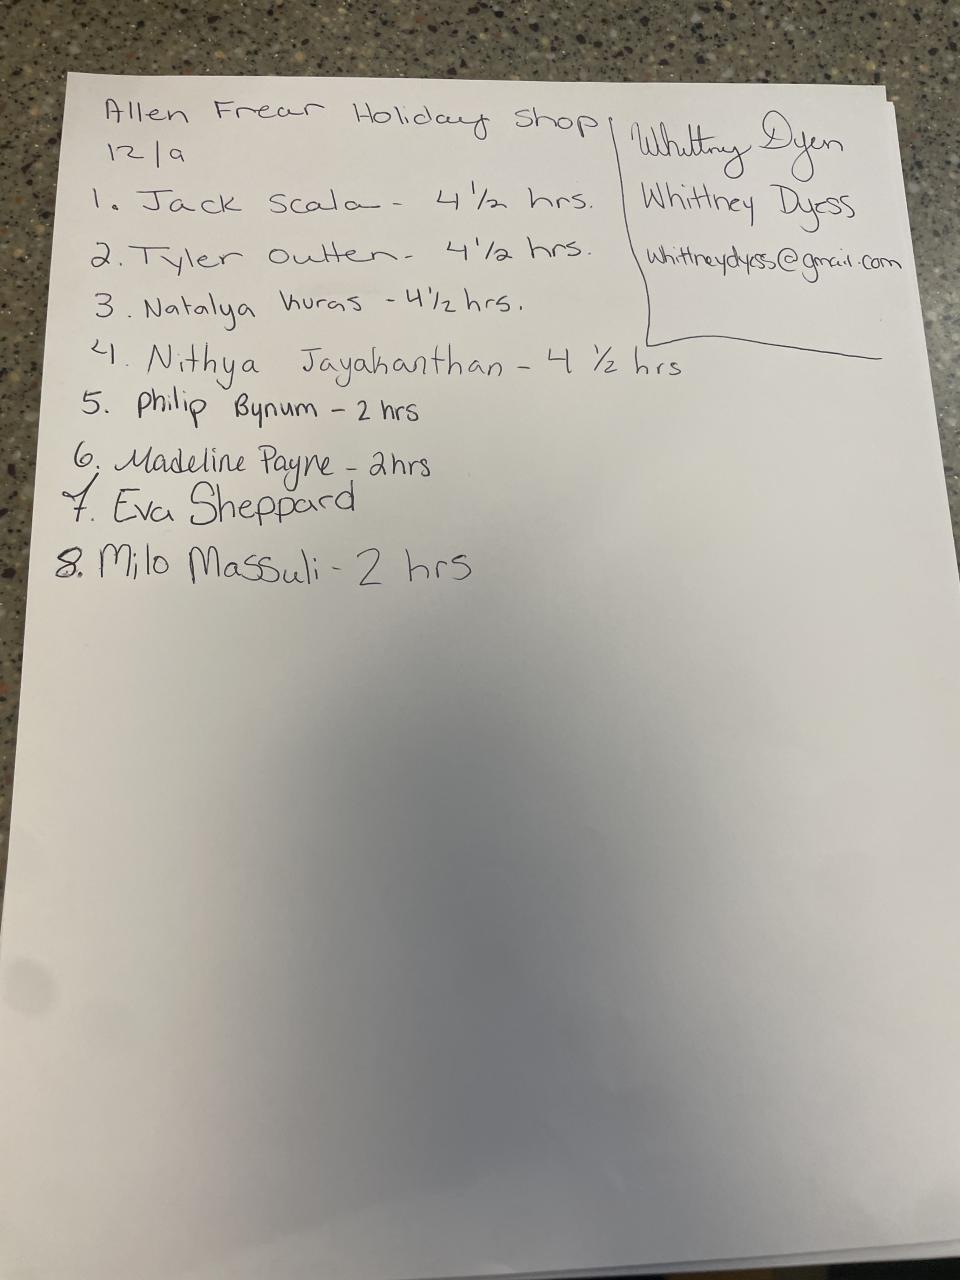 Allen Frear Holiday Shop
12/9
1. Jack Scala - 4 1/2 hrs.
2. Tyler Outten - 4 1/2 hrs.
3. Natalya Kuras - 4 1/2 hrs.
4. Nithya Jayakanthan - 4 1/2 hrs
5. Philip Bynum - 2 hrs
6. Madeline Payne - 2 hrs
7. Eva Sheppard
8. Milo Massuli - 2 hrs
Whittney Dyess
Whittney Dyess
whittneydyess@gmail.com